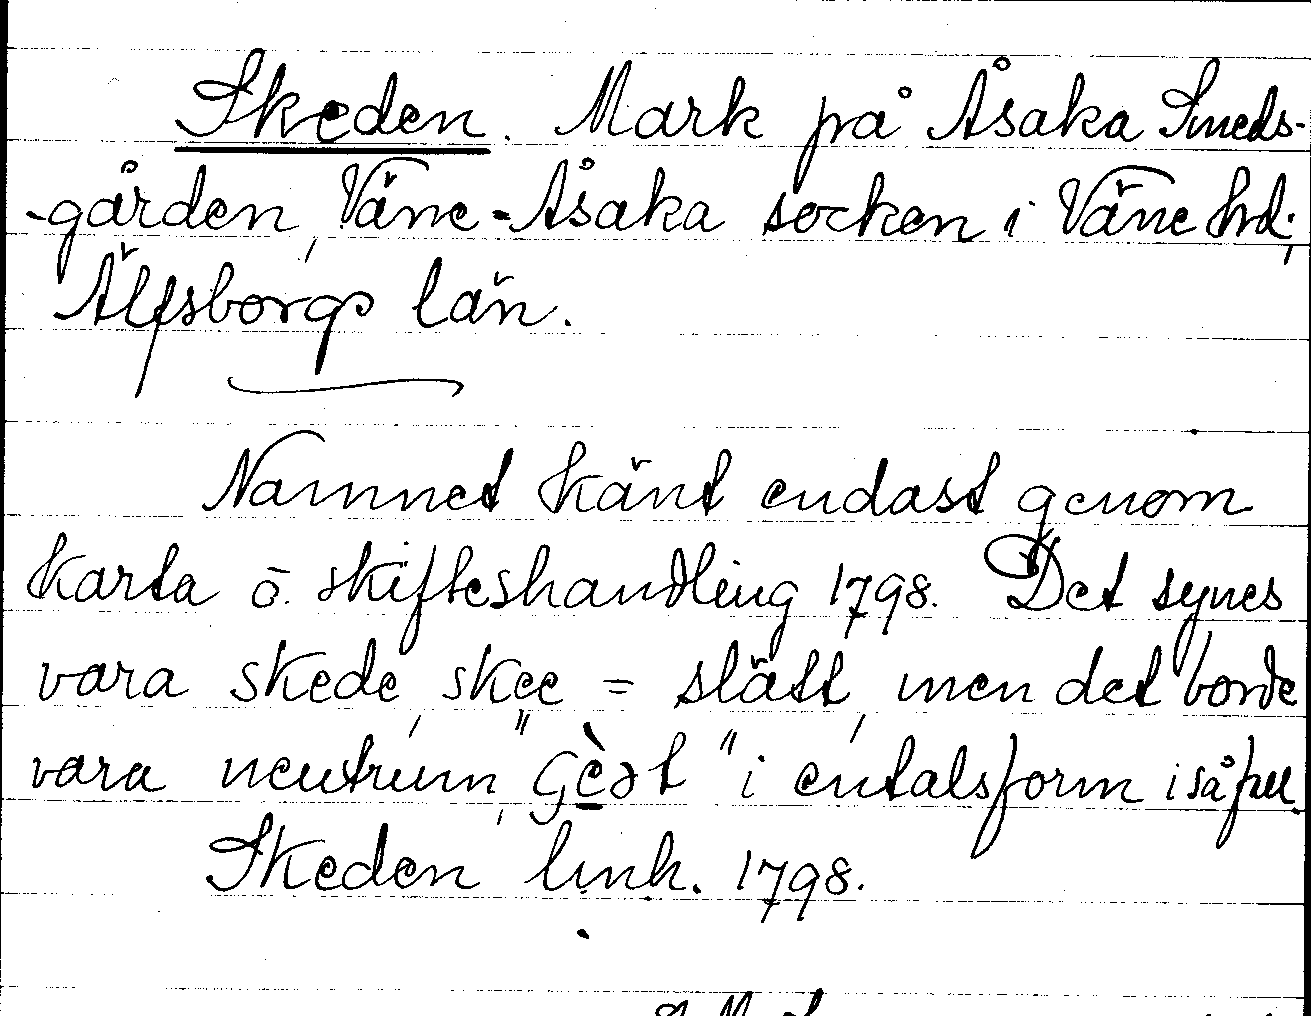 Skeden. Mark på Åsaka Smeds-
-gården, Väne-Åsaka socken i Väne hrd,
Älfsborgs län.
Namnet känt endast genom
karta o. skifteshandling 1798. Det synes
vara skede, skee = slätt, men det borde
vara neutrum, "Gèət" i entalsform i så fall.
Skeden link. 1798.